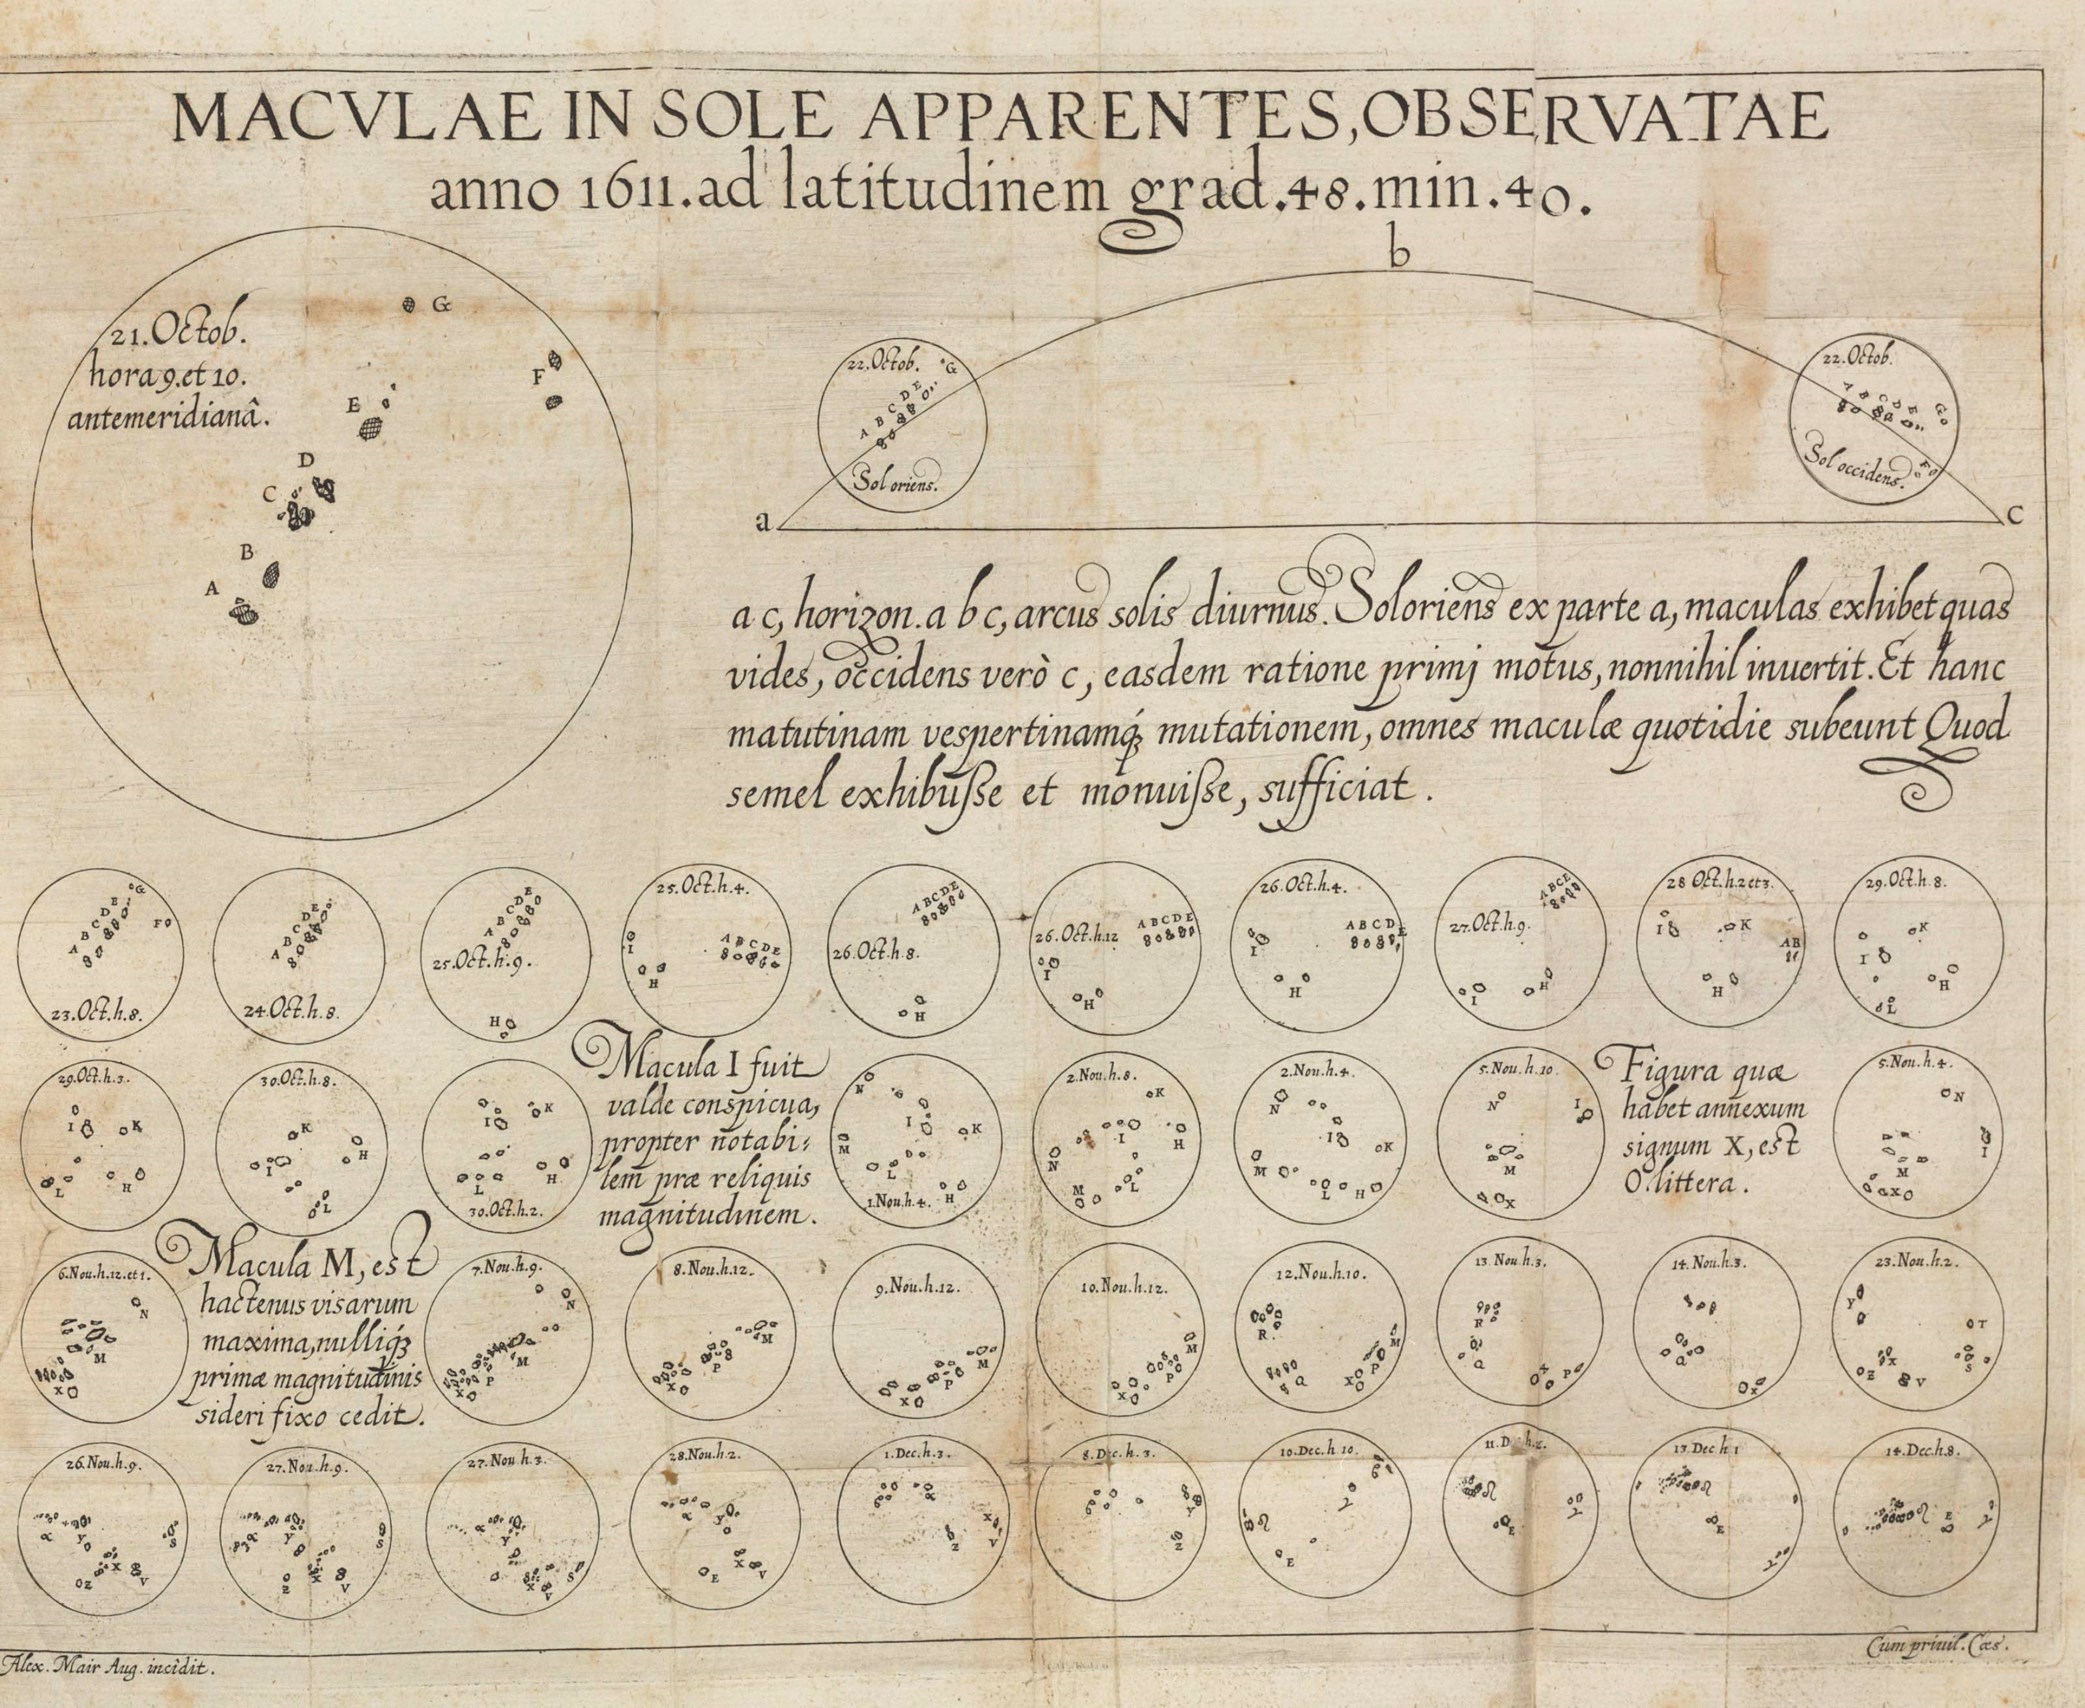 MACVLAE IN SOLE APPARENTES, OBSERVATAE
anno 1611. ad latitudinem grad. 48. min. 40.
21. Octob.
hora 9. et 10.
antemeridianâ.
G
F
E
D
C
B
A
b
22. Octob. G
A B C D E
Sol oriens.
22. Octob.
A B C D E G
F
Sol occidens.
a
c
a c, horizon. a b c, arcus solis diurnus. Sol oriens ex parte a, maculas exhibet quas
vides, occidens verò c, easdem ratione primj motus, nonnihil inuertit. Et hanc
matutinam vespertinamq́ꝫ mutationem, omnes maculæ quotidie subeunt Quod
semel exhibuiſſe et monuiſſe, sufficiat.
A B C D E G F
23. Oct. h. 8.
A B C D E
24. Oct. h. 8.
A B C D E
25. Oct. h. 9.
H
25. Oct. h. 4.
A B C D E
I
H
A B C D E
26. Oct. h. 8.
H
26. Oct. h. 12
A B C D E
I
H
26. Oct. h. 4.
A B C D E
I
H
A B C E
27. Oct. h. 9.
I
H
28 Oct. h. 2 et 3.
I K
A B
H
29. Oct. h. 8.
K
I
H
L
29. Oct. h. 3.
I K
L H
30. Oct. h. 8.
K
I H
L
I K
L H
30. Oct. h. 2.
Macula I fuit
valde conspicua,
propter notabi:
lem præ reliquis
magnitudinem.
N
I K
M
L
H
1. Nou. h. 4.
2. Nou. h. 8.
K
I H
N
M L
2. Nou. h. 4.
N
I K
M
L H
5. Nou. h. 10.
N I
M
X
Figura quæ
habet annexum
signum X, est
O. littera.
5. Nou. h. 4.
N
I
M
X
6. Nou. h. 12. et 1.
N
M
X
Macula M, est
hactenus visarum
maxima, nulliq́ꝫ
primæ magnitudinis
sideri fixo cedit.
7. Nou. h. 9.
N
M
P
X
8. Nou. h. 12.
M
P
X
9. Nou. h. 12.
M
P
X
10. Nou. h. 12.
M
P
X
12. Nou. h. 10.
R
M
P
Q X
13 Nou. h. 3.
R
Q
P
14. Nou. h. 3.
Q
X
23. Nou. h. 2.
Y
T
Z X V S
26. Nou. h. 9.
α Y S
X
Z V
27. Nou. h. 9.
α Y S
X
Z V
27. Nou h. 3.
α
Y
X V S
28. Nou. h. 2.
α Y
X V
E
1. Dec. h. 3.
α
X
Z V
8. Dec. h. 3.
Y
Z
10. Dec. h 10.
♌
γ
E
11. Dec. h. 2.
♌
γ
E
13. Dec. h 1
♌
E
γ
14. Dec. h. 8.
♌ E γ
Alex. Mair Aug. incidit.
Cum priuil. Cæs.